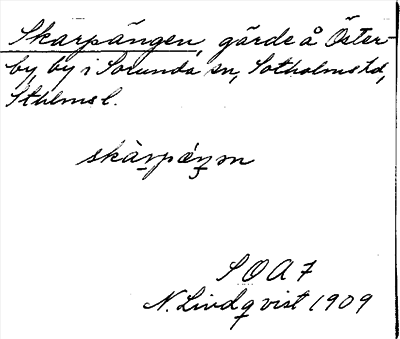 Skarpängen, gärde å Öster-
by by i Sorunda sn, Sotholms hd,
Sthlms l.
skàrpǽŋən
S O A 7
N. Lindqvist 1909